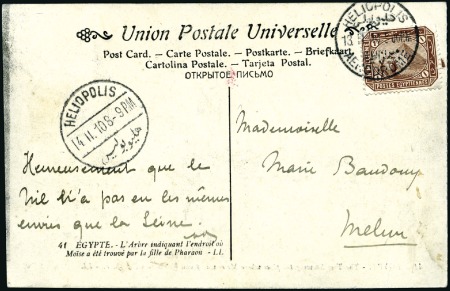 Union Postale Universelle
Post Card. — Carte Postale. — Postkarte. — Briefkaart.
Cartolina Postale. — Tarjeta Postal.
ОТКРЫТОЕ ПИСЬМО
HELIOPOLIS
POSTES EGYPTIENNES
HELIOPOLIS
14 II. 10 8-9 PM
هليوبوليس
Mademoiselle
Marie Baudouy
Melun
Heureusement que le
Nil n'a pas eu les mêmes
envies que la Seine.
41 ÉGYPTE. - L'Arbre indiquant l'endroit où
Moïse a été trouvé par la fille de Pharaon - LL